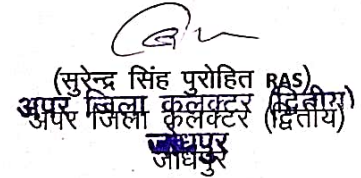 (सुरेन्द्र सिंह पुरोहित RAS)
अपर जिला कलक्टर (द्वितीय)
अपर जिला कलेक्टर (द्वितीय)
जोधपुर
जोधपुर